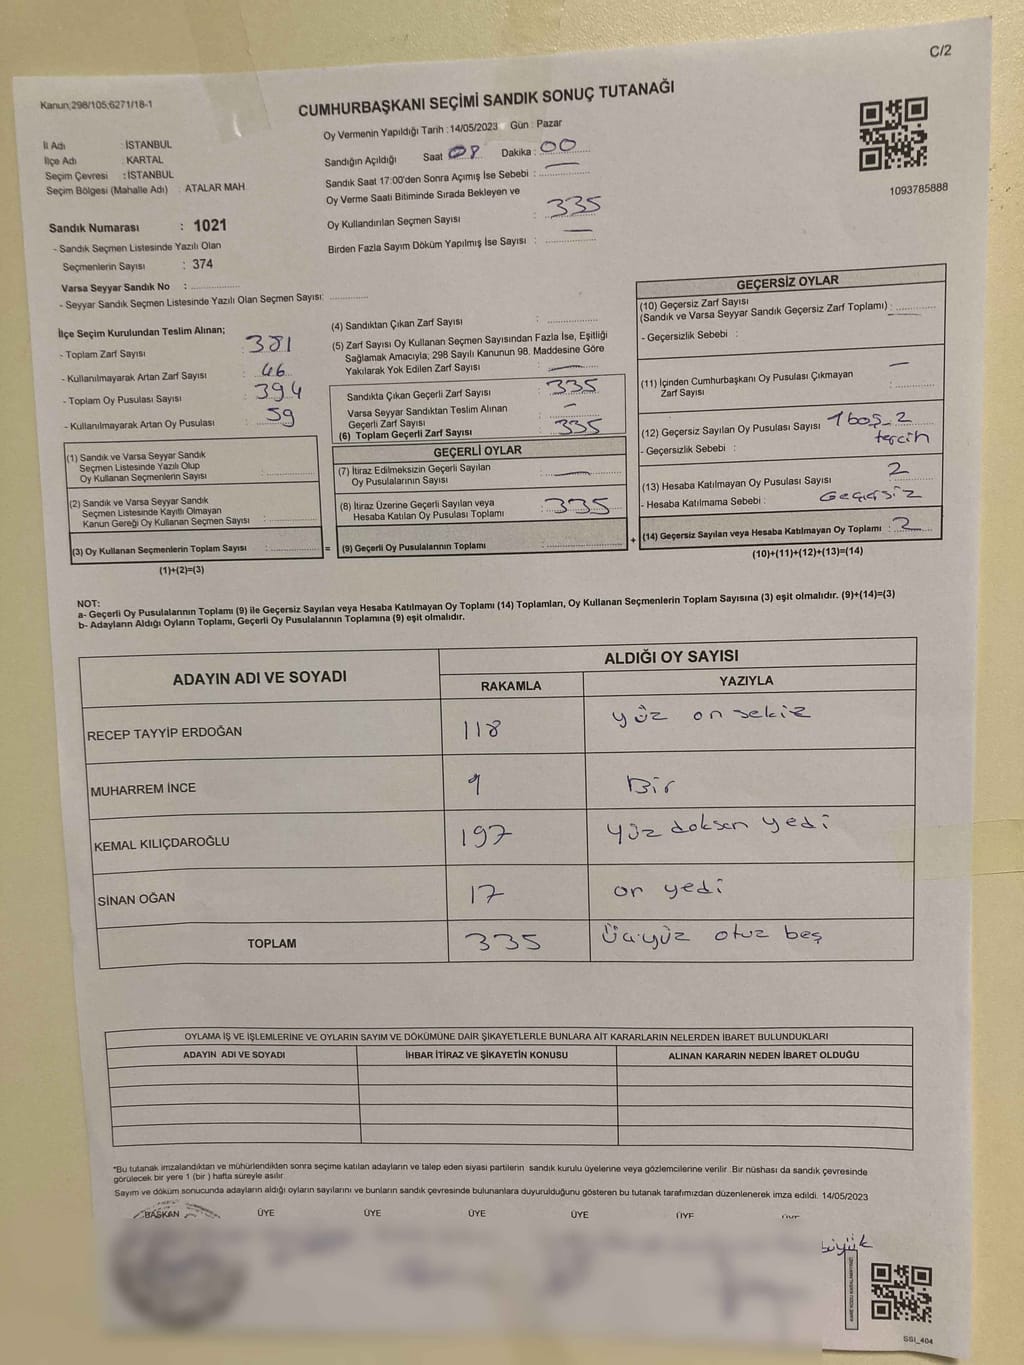 C/2
Kanun;298/105;6271/18-1
CUMHURBAŞKANI SEÇİMİ SANDIK SONUÇ TUTANAĞI
İl Adı : İSTANBUL
İlçe Adı : KARTAL
Seçim Çevresi : İSTANBUL
Seçim Bölgesi (Mahalle Adı) : ATALAR MAH.
Oy Vermenin Yapıldığı Tarih : 14/05/2023 Gün : Pazar
Sandığın Açıldığı Saat 08 Dakika : 00
Sandık Saat 17:00'den Sonra Açımış İse Sebebi :
Oy Verme Saati Bitiminde Sırada Bekleyen ve
Oy Kullandırılan Seçmen Sayısı : 335
Birden Fazla Sayım Döküm Yapılmış İse Sayısı :
1093785888
Sandık Numarası : 1021
- Sandık Seçmen Listesinde Yazılı Olan
Seçmenlerin Sayısı : 374
Varsa Seyyar Sandık No :
- Seyyar Sandık Seçmen Listesinde Yazılı Olan Seçmen Sayısı:
İlçe Seçim Kurulundan Teslim Alınan;
- Toplam Zarf Sayısı : 381
- Kullanılmayarak Artan Zarf Sayısı : 46
- Toplam Oy Pusulası Sayısı : 394
- Kullanılmayarak Artan Oy Pusulası : 59
(1) Sandık ve Varsa Seyyar Sandık
Seçmen Listesinde Yazılı Olup
Oy Kullanan Seçmenlerin Sayısı :
(2) Sandık ve Varsa Seyyar Sandık
Seçmen Listesinde Kayıtlı Olmayan
Kanun Gereği Oy Kullanan Seçmen Sayısı :
(3) Oy Kullanan Seçmenlerin Toplam Sayısı : =
(1)+(2)=(3)
(4) Sandıktan Çıkan Zarf Sayısı :
(5) Zarf Sayısı Oy Kullanan Seçmen Sayısından Fazla İse, Eşitliği
Sağlamak Amacıyla; 298 Sayılı Kanunun 98. Maddesine Göre
Yakılarak Yok Edilen Zarf Sayısı :
Sandıkta Çıkan Geçerli Zarf Sayısı : 335
Varsa Seyyar Sandıktan Teslim Alınan
Geçerli Zarf Sayısı : -
(6) Toplam Geçerli Zarf Sayısı : 335
GEÇERLİ OYLAR
(7) İtiraz Edilmeksizin Geçerli Sayılan
Oy Pusulalarının Sayısı :
(8) İtiraz Üzerine Geçerli Sayılan veya
Hesaba Katılan Oy Pusulası Toplamı : 335
(9) Geçerli Oy Pusulalarının Toplamı : +
GEÇERSİZ OYLAR
(10) Geçersiz Zarf Sayısı
(Sandık ve Varsa Seyyar Sandık Geçersiz Zarf Toplamı) :
- Geçersizlik Sebebi :
(11) İçinden Cumhurbaşkanı Oy Pusulası Çıkmayan
Zarf Sayısı :
(12) Geçersiz Sayılan Oy Pusulası Sayısı : 1 boş 2
tercih
- Geçersizlik Sebebi :
(13) Hesaba Katılmayan Oy Pusulası Sayısı : 2
- Hesaba Katılmama Sebebi : Geçersiz
(14) Geçersiz Sayılan veya Hesaba Katılmayan Oy Toplamı : 2
(10)+(11)+(12)+(13)=(14)
NOT:
a- Geçerli Oy Pusulalarının Toplamı (9) ile Geçersiz Sayılan veya Hesaba Katılmayan Oy Toplamı (14) Toplamları, Oy Kullanan Seçmenlerin Toplam Sayısına (3) eşit olmalıdır. (9)+(14)=(3)
b- Adayların Aldığı Oyların Toplamı, Geçerli Oy Pusulalarının Toplamına (9) eşit olmalıdır.
ADAYIN ADI VE SOYADI
ALDIĞI OY SAYISI
RAKAMLA YAZIYLA
RECEP TAYYİP ERDOĞAN 118 yüz on sekiz
MUHARREM İNCE 1 Bir
KEMAL KILIÇDAROĞLU 197 yüz doksan yedi
SİNAN OĞAN 17 on yedi
TOPLAM 335 Üçyüz otuz beş
OYLAMA İŞ VE İŞLEMLERİNE VE OYLARIN SAYIM VE DÖKÜMÜNE DAİR ŞİKAYETLERLE BUNLARA AİT KARARLARIN NELERDEN İBARET BULUNDUKLARI
ADAYIN ADI VE SOYADI İHBAR İTİRAZ VE ŞİKAYETİN KONUSU ALINAN KARARIN NEDEN İBARET OLDUĞU
*Bu tutanak imzalandıktan ve mühürlendikten sonra seçime katılan adayların ve talep eden siyasi partilerin sandık kurulu üyelerine veya gözlemcilerine verilir. Bir nüshası da sandık çevresinde
görülecek bir yere 1 (bir ) hafta süreyle asılır.
Sayım ve döküm sonucunda adayların aldığı oyların sayılarını ve bunların sandık çevresinde bulunanlara duyurulduğunu gösteren bu tutanak tarafımızdan düzenlenerek imza edildi. 14/05/2023
BAŞKAN ÜYE ÜYE ÜYE ÜYE ÜYE
büyük
SSI_404